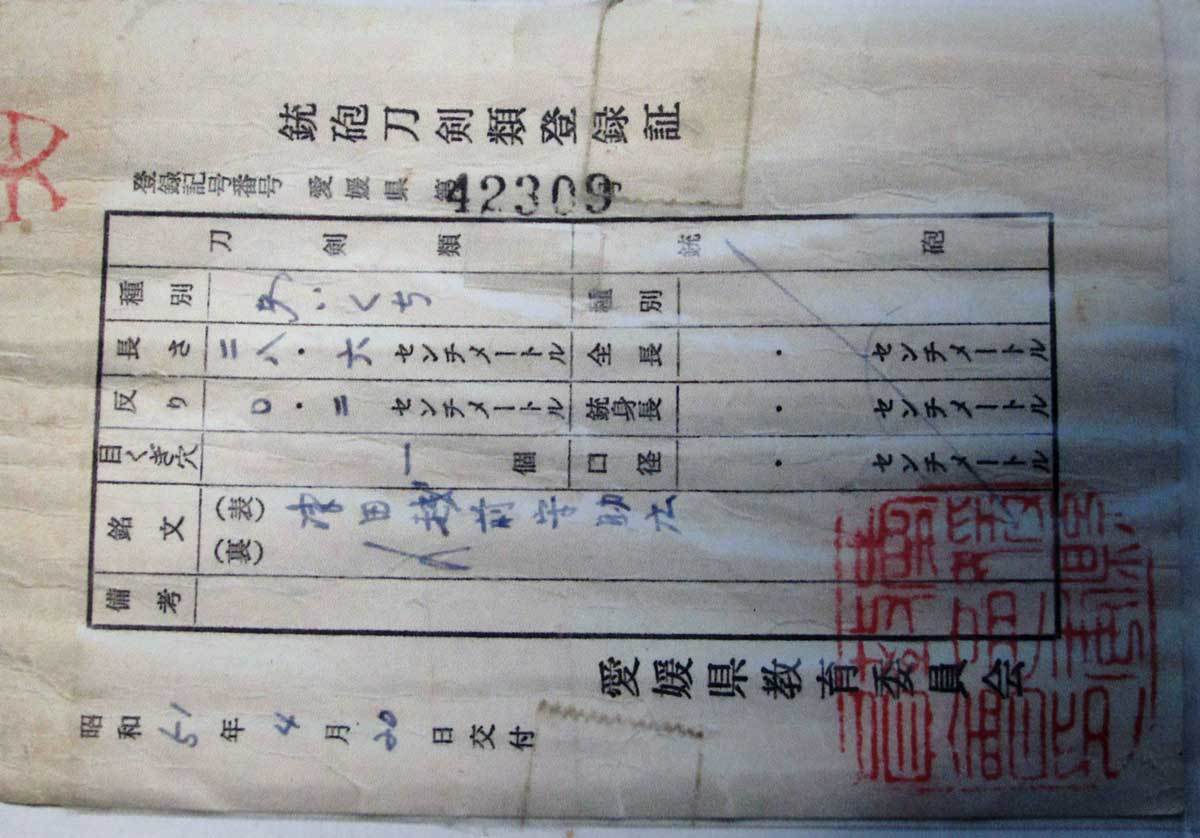 銃砲刀剣類登録証
登録記号番号 愛媛県 第42309号
刀剣類 銃砲
種別 あいくち 種別
長さ 二八・六 センチメートル 全長 ・ センチメートル
反り 〇・二 センチメートル 銃身長 ・ センチメートル
目くぎ穴 一 個 口径 ・ センチメートル
銘文 (表) 津田越前守助広
(裏)
備考
愛媛県教育委員会
昭和51年4月20日交付